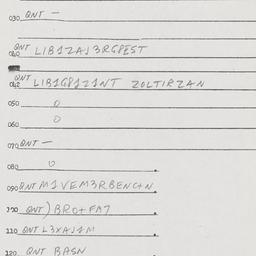 030 QNT -
040 QNT LIB1ZAJ3RG8EST
042 QNT LIB1G8J2I1NT ZOLTIRZAN
050 0
060 0
070 QNT -
080 0
090 QNT M1VEM3RBENC+N
100 QNT) BRO+FA7
110 QNT L3XAJ1M
120 QNT BASN